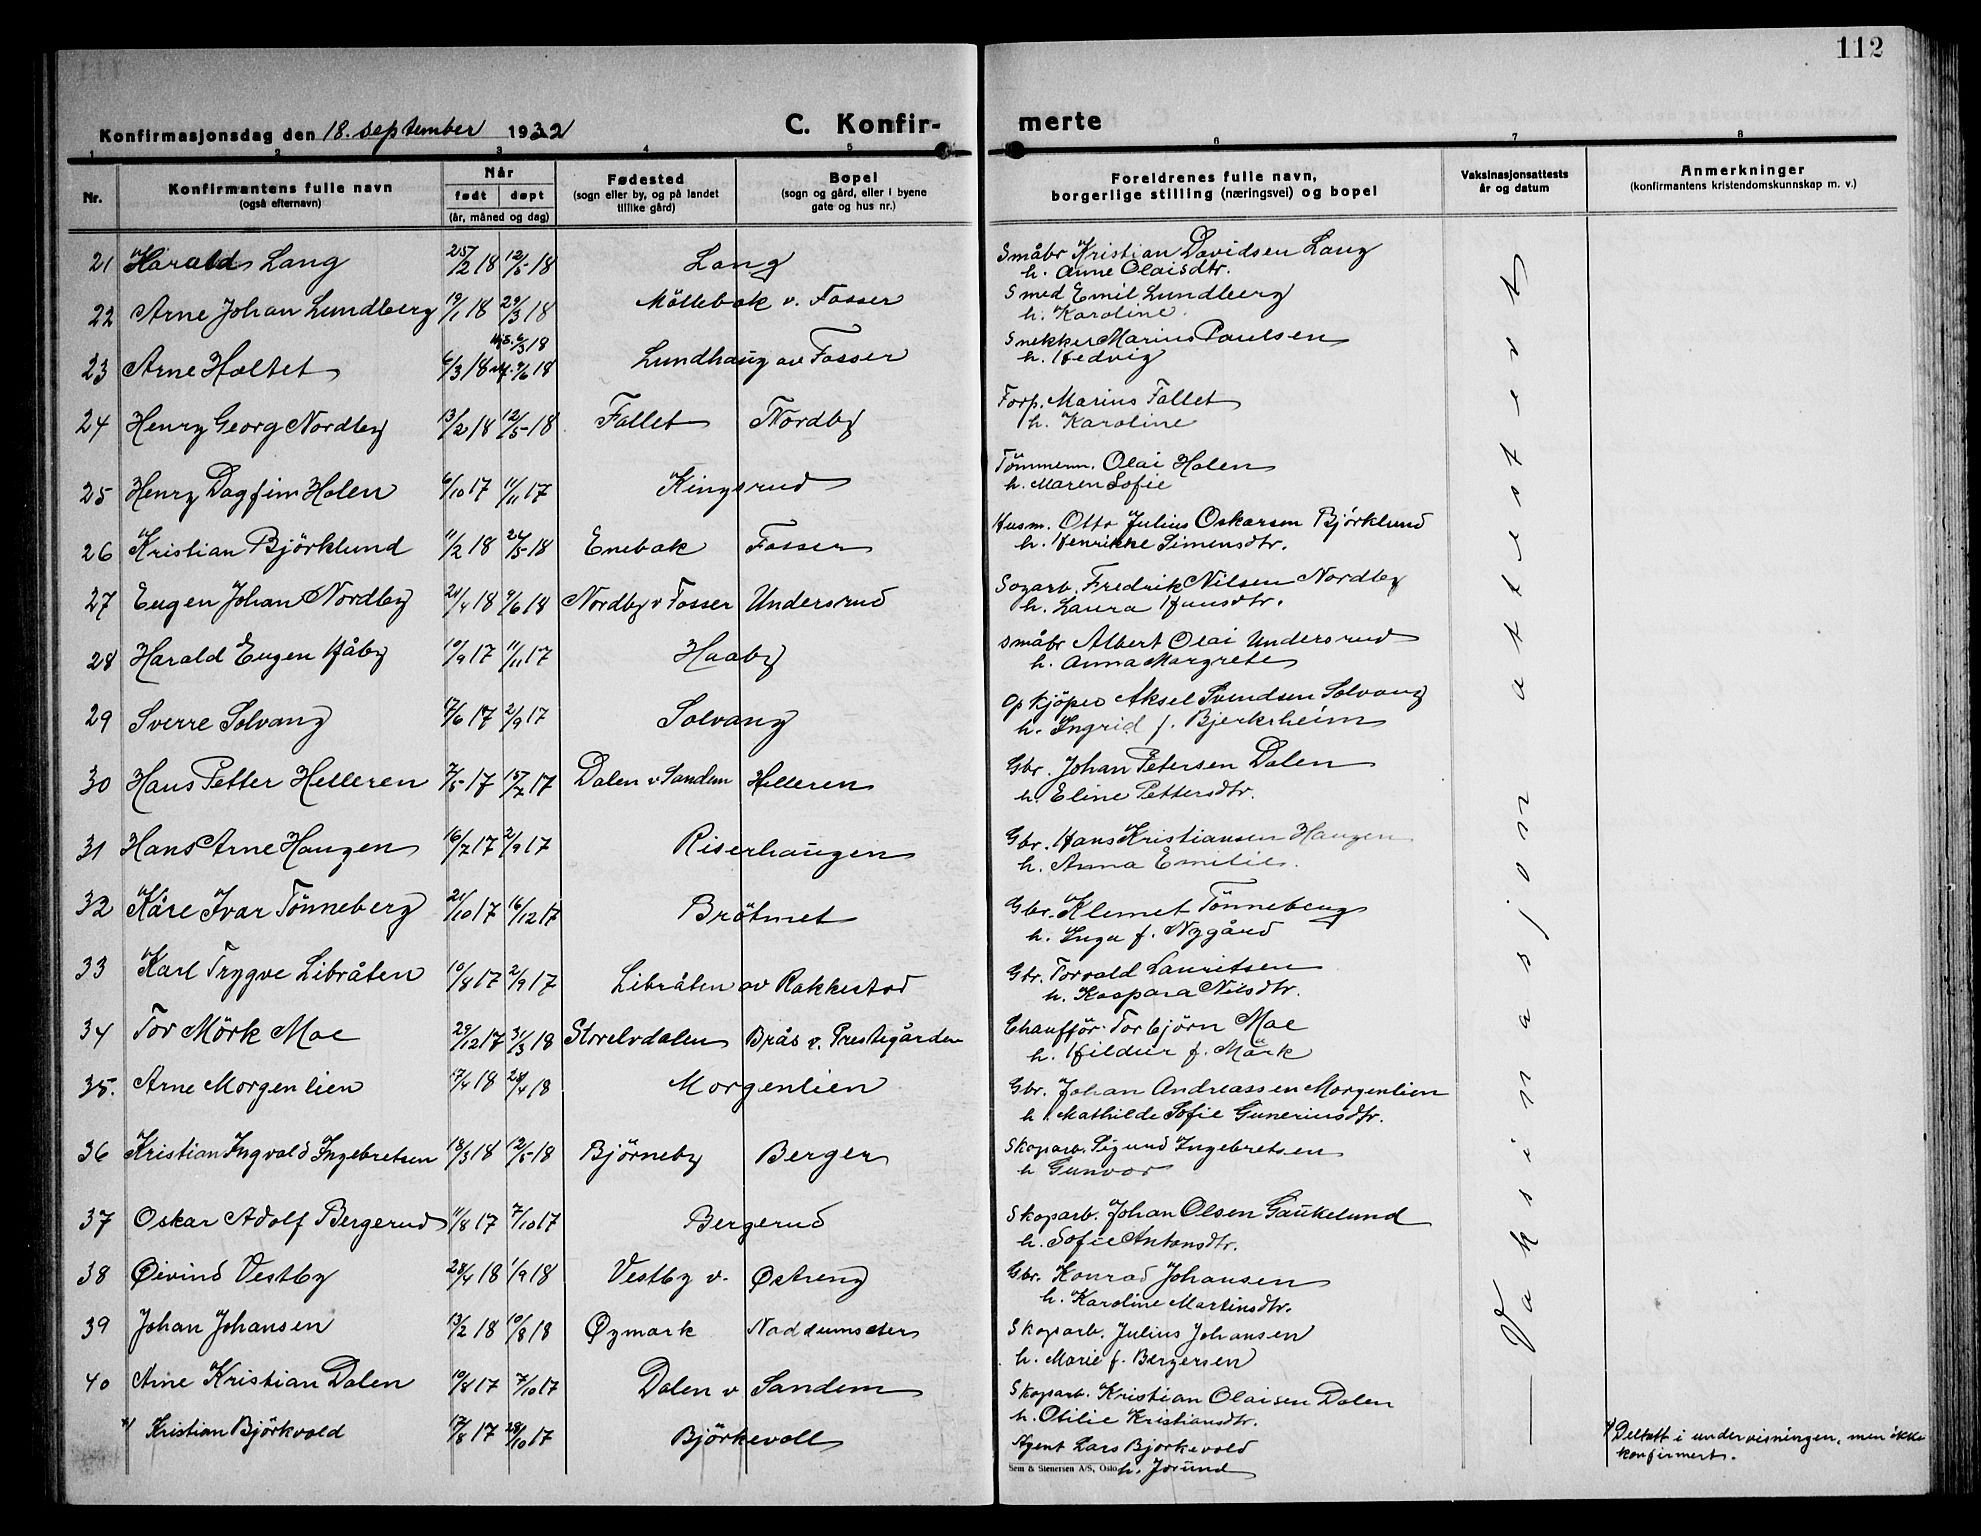 112
Konfirmasjonsdag den 18. september 1932
C. Konfir- merte
1 2 3 4 5 6 7 8
Nr.
Konfirmantens fulle navn
(også efternavn)
Når
født døpt
(år, måned og dag)
Fødested
(sogn eller by, og på landet
tillike gård)
Bopel
(sogn og gård, eller i byene
gate og hus nr.)
Foreldrenes fulle navn,
borgerlige stilling (næringsvei) og bopel
Vaksinasjonsattests
år og datum
Anmerkninger
(konfirmantens kristendomskunnskap m. v.)
21 Harald Lang 25/2 18 12/5-18 Lang Småbr Kristian Davidsen Lang
h. Anne Olaisdtr.
22 Arne Johan Lundberg 19/1 18 29/3 18 Möllebak v. Fosser Smed Emil Lundberg
h. Karoline.
23 Arne Holtet 6/3 18 9/6 18 Lundhaug av Fosser Snekker Marius Paulsen
h. Hedvig
24 Henry Georg Nordby 13/2 18 12/5-18 Fallet Nordby Forp. Marius Fallet
h. Karoline
25 Henry Dagfinn Holen 6/10 17 11/11 17 Kingsrud Tömmerm. Olai Holen
h. Maren Sofie
26 Kristian Björklund 11/2 18 26/5-18 Enebak Fosser Husm. Otto Julius Oskarsen Björklund
h. Henrikke Simensdtr.
27 Eugen Johan Nordby 21/4 18 9/6 18 Nordby v Fosser Undersrud Sagarb. Fredrik Nilsen Nordby
h. Laura Hansdtr.
28 Harald Eugen Håby 10/9 17 11/11 17 Haaby småbr Albert Olai Undersrud
h. Anna Margrete
29 Sverre Solvang 17/6 17 2/9 17 Solvang Opkjöper Aksel Svendsen Solvang
h. Ingrid f. Bjerkrheim
30 Hans Petter Helleren 7/5-17 15/7 17 Dalen v Sandem Helleren Gbr. Johan Petersen Dalen
h. Eline Pettersdtr.
31 Hans Arne Haugen 16/7 17 2/9 17 Riserhaugen Gbr. Hans Kristiansen Haugen
h. Anna Emilie.
32 Kåre Ivar Tönneberg 21/10 17 16/12 17 Bråtmet Gbr. Klemet Tönneberg
h. Inga f. Nygård
33 Karl Trygve Libråten 10/8 17 2/9 17 Libråten av Rakkestad Gbr. Torvald Lauritsen
h. Kaspara Nilsdtr.
34 Tor Mörk Moe 29/12 17 31/3 18 Storelvdalen Brås v. Prestegården Chaufför Torbjörn Moe
h. Hildur f. Mörk
35. Arne Morgenlien 17/4 18 28/4 18 Morgenlien Gbr. Johan Andreassen Morgenlien
h. Mathilde Sofie Guneriusdtr.
36 Kristian Ingvald Ingebretsen 18/3 18 12/5-18 Björneby Berger Skoparb. Sigurd Ingebretsen
h Gunvor
37 Oskar Adolf Bergerud 11/8 17 7/10 17 Bergerud Skoparb. Johan Olsen Gaukelund
h. Sofie Antonsdtr.
38 Øivind Vestby 28/4 18 1/9 18 Vestby v. Østreng Gbr. Konrad Johansen
h. Karoline Martinsdtr.
39 Johan Johansen 13/2 18 10/8 18 Øymark Naddumseter Skoparb. Julius Johansen
h. Marie f. Bergersen
40 Arne Kristian Dalen 10/8 17 7/10 17 Dalen v Sandem Skoparb. Kristian Olaisen Dalen
h. Otilie Kristiansdtr.
x) Kristian Björkvold 17/8 17 28/10 17 Björkevoll Agent Lars Bjørkevold
h. Jorund
x) Deltatt i undervisningen, men ikke
konfirmert.
Vaksinasjon attestert
Sem & Stenersen A/S, Oslo